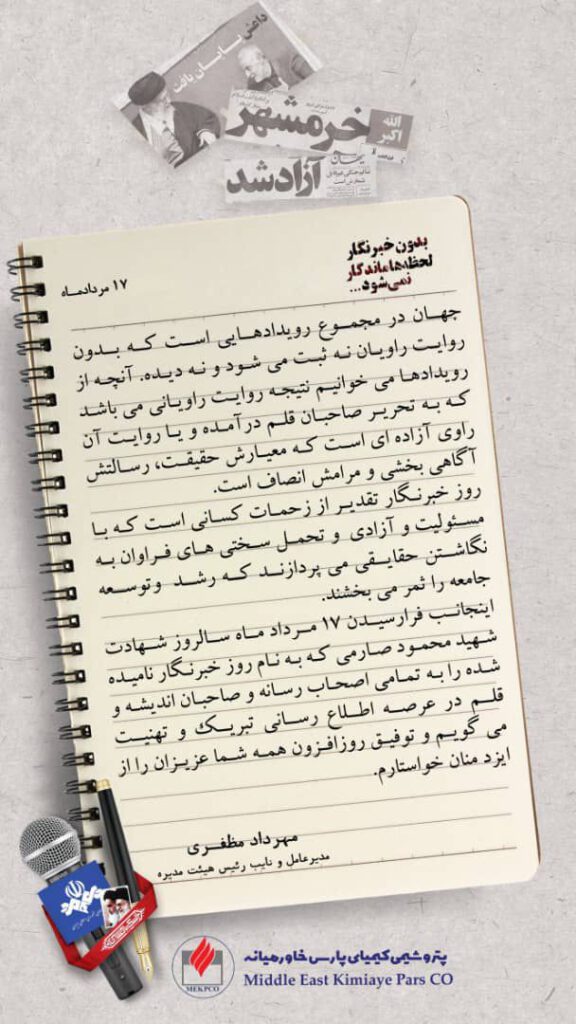 داعش پایان یافت
خرمشهر
الله
اکبر
آزاد شد
بدون خبرنگار
لحظه‌ها ماندگار
نمی‌شود...
۱۷ مردادماه
جهان در مجموع رویدادهایی است که بدون
روایت راویان نه ثبت می شود و نه دیده. آنچه از
رویدادها می خوانیم نتیجه روایت راویانی می باشد
که به تحریر صاحبان قلم درآمده و یا روایت آن
راوی آزاده ای است که معیارش حقیقت، رسالتش
آگاهی بخشی و مرامش انصاف است.
روز خبرنگار تقدیر از زحمات کسانی است که با
مسئولیت و آزادی و تحمل سختی های فراوان به
نگاشتن حقایقی می پردازند که رشد وتوسعه
جامعه را ثمر می بخشند.
اینجانب فرارسیدن ۱۷ مرداد ماه سالروز شهادت
شهید محمود صارمی که به نام روز خبرنگار نامیده
شده را به تمامی اصحاب رسانه و صاحبان اندیشه و
قلم در عرصه اطلاع رسانی تبریک و تهنیت
می گویم و توفیق روزافزون همه شما عزیزان را از
ایزد منان خواستارم.
مهرداد مظفری
مدیرعامل و نایب رئیس هیئت مدیره
پتروشیمی کیمیای پارس خاورمیانه
Middle East Kimiaye Pars CO
MEKPCO